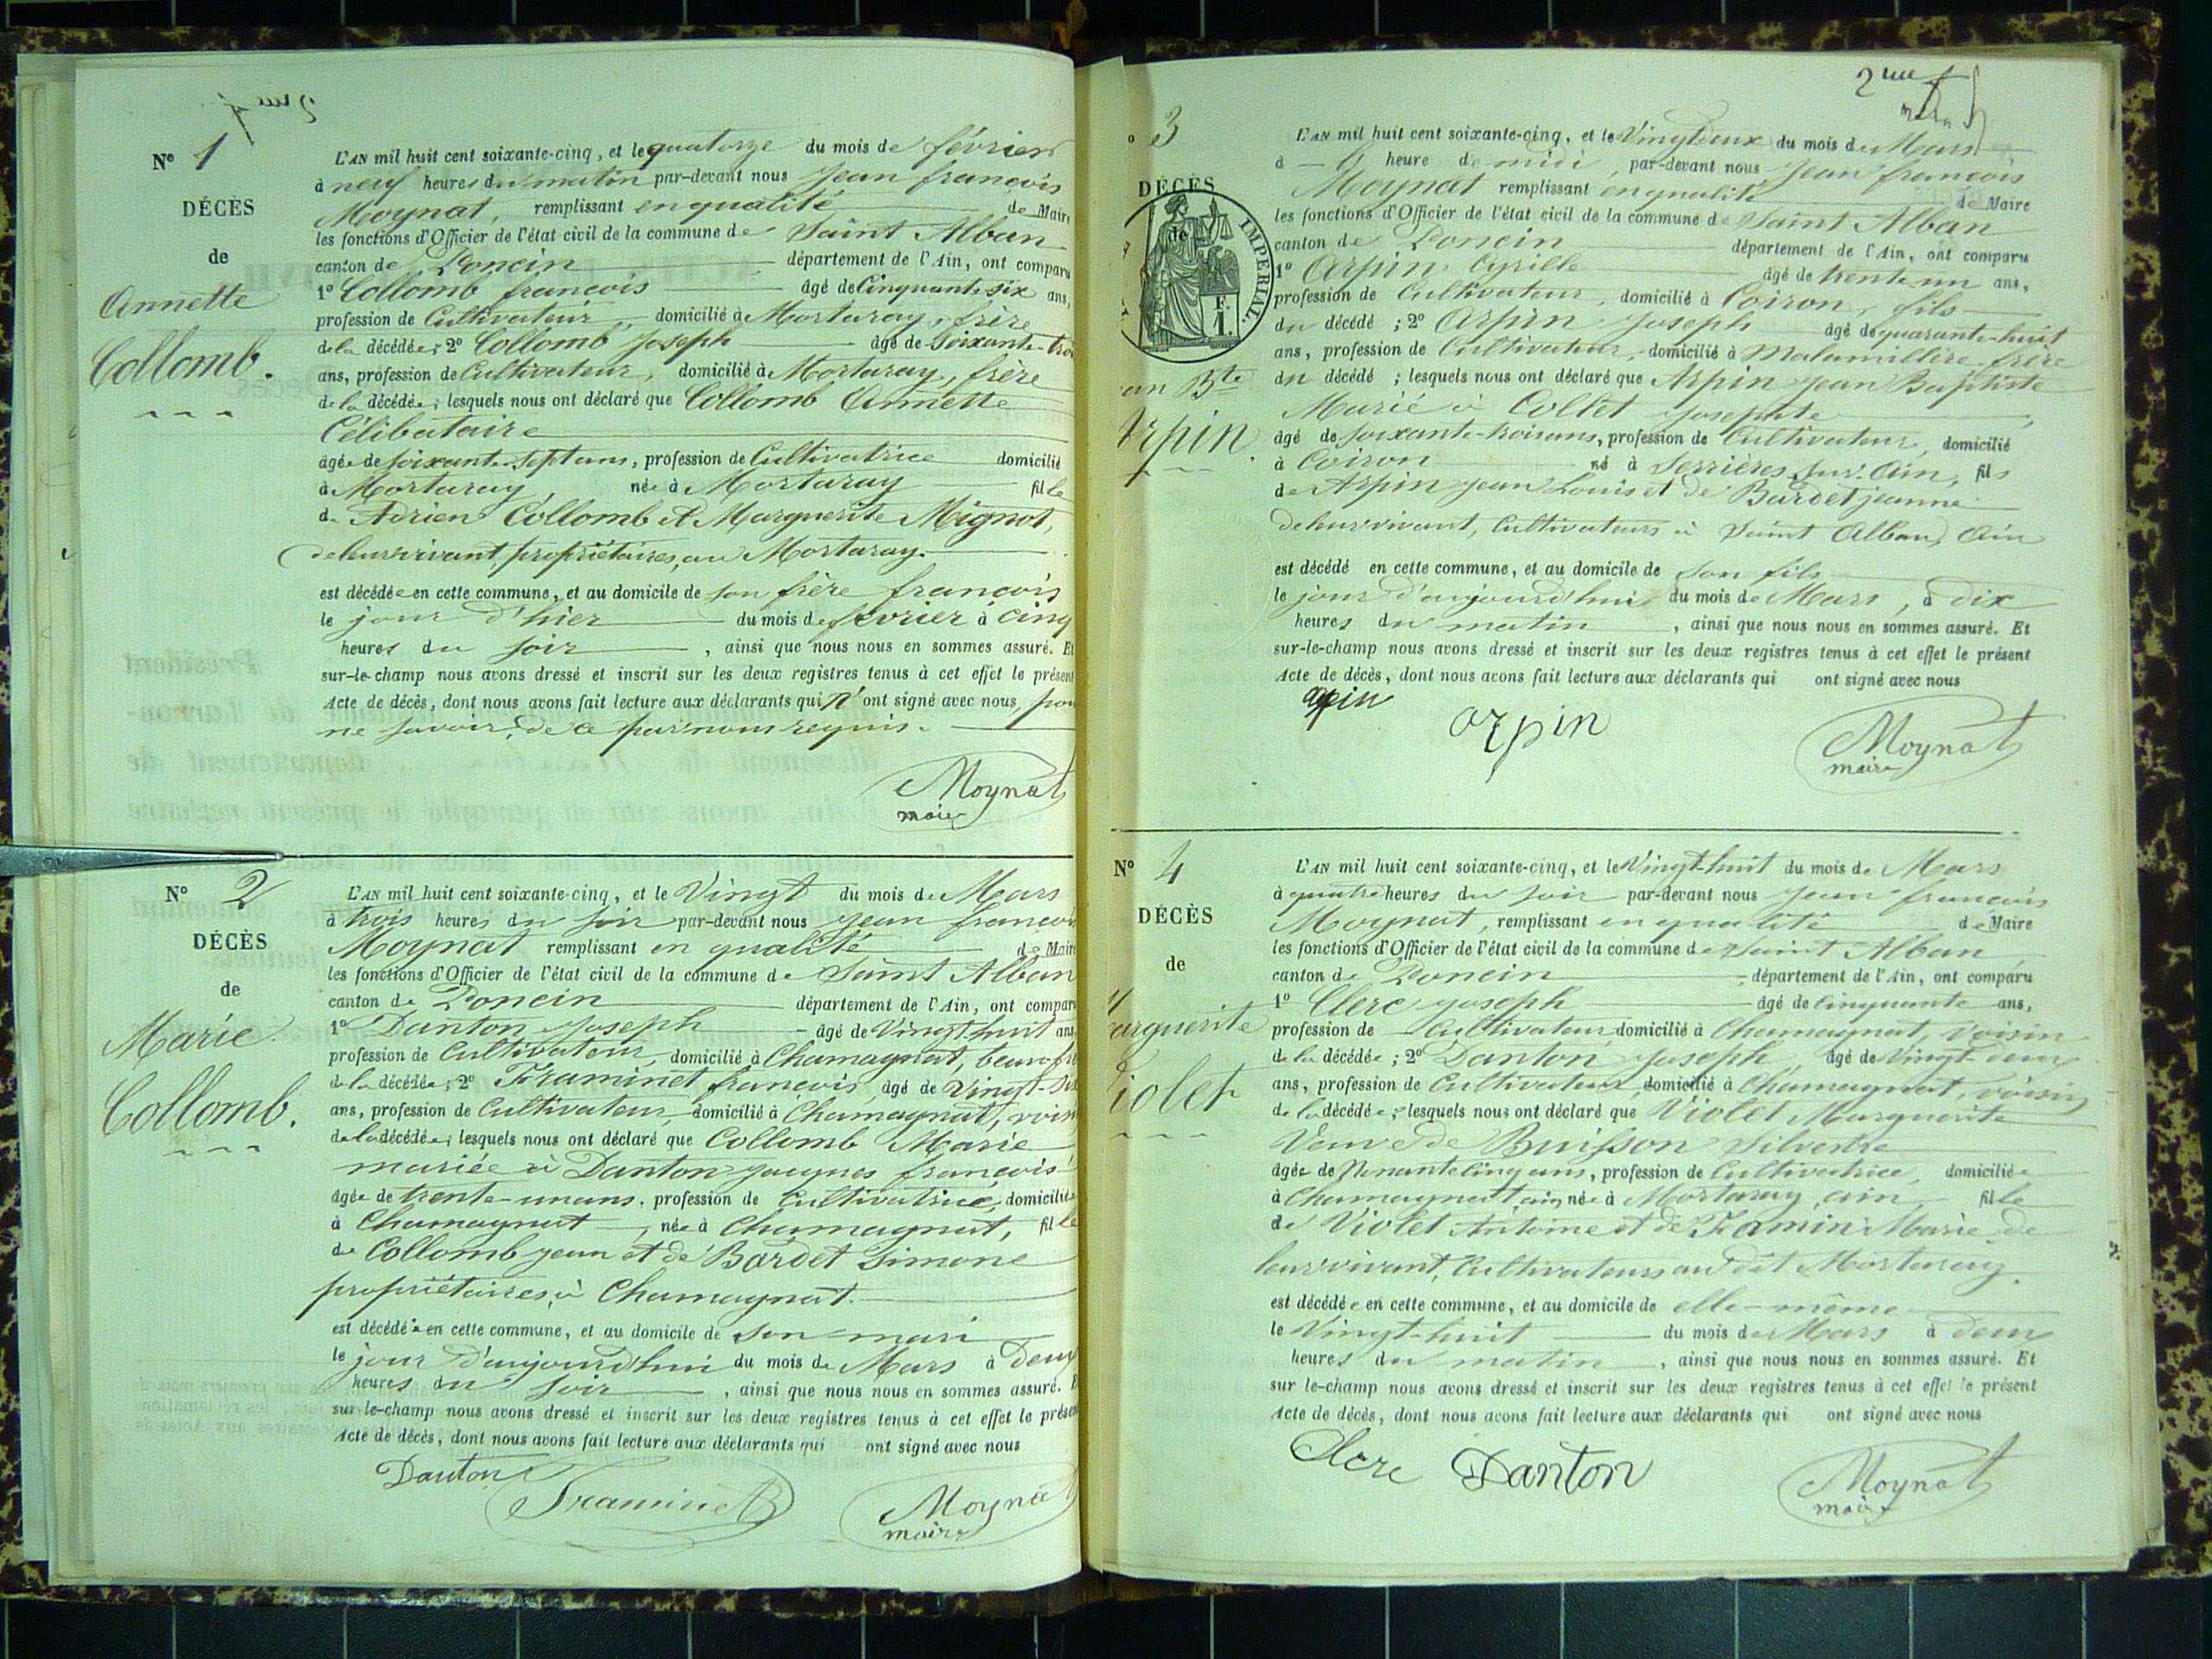 2me f
Nº 1
DÉCÈS
de
Annette
Collomb.
L'AN mil huit cent soixante-cinq, et le quatorze du mois de février
à neuf heures du matin par-devant nous Jean françois
Moynat, remplissant en qualité de Maire
les fonctions d'Officier de l'état civil de la commune de Saint Alban
canton de Poncin département de l'Ain, ont comparu
1º Collomb françois âgé de Cinquante six ans,
profession de Cultivateur, domicilié à Mortaray, frère
de la décédée; 2º Collomb Joseph âgé de Soixante-trois
ans, profession de Cultivateur, domicilié à Mortaray, frère
de la décédée; lesquels nous ont déclaré que Collomb Annette
Célibataire
âgée de soixante-sept ans, profession de Cultivatrice domicilié
à Mortaray, née à Mortaray fille
de Adrien Collomb et Marguerite Mignot,
de leur vivant, propriétaires, au Mortaray.
est décédée en cette commune, et au domicile de son frère françois
le jour d'hier du mois de février à cinq
heures du soir, ainsi que nous nous en sommes assuré. Et
sur-le-champ nous avons dressé et inscrit sur les deux registres tenus à cet effet le présent
Acte de décès, dont nous avons fait lecture aux déclarants qui n'ont signé avec nous, pour
ne savoir, de ce par nous requis.
Moynat
maire
Nº 2
DÉCÈS
de
Marie
Collomb.
L'AN mil huit cent soixante-cinq, et le Vingt du mois de Mars
à trois heures du soir par-devant nous Jean françois
Moynat remplissant en qualité de Maire
les fonctions d'Officier de l'état civil de la commune de Saint Alban
canton de Poncin département de l'Ain, ont comparu
1º Danton Joseph âgé de Vingt-huit ans
profession de Cultivateur, domicilié à Chamagnat, beau-frè
de la décédée; 2º Framinet françois, âgé de Vingt-
ans, profession de Cultivateur, domicilié à Chamagnat, voisin
de la décédée; lesquels nous ont déclaré que Collomb Marie
mariée à Danton Jacques françois
âgée de trente-un ans, profession de Cultivatrice, domiciliée
à Chamagnat, née à Chamagnat, fille
de Collomb Jean et de Bardet Simone
propriétaires, à Chamagnat.
est décédée en cette commune, et au domicile de son mari
le jour d'aujourd'hui du mois de Mars à deux
heures du soir, ainsi que nous nous en sommes assuré. E
sur-le-champ nous avons dressé et inscrit sur les deux registres tenus à cet effet le présen
Acte de décès, dont nous avons fait lecture aux déclarants qui ont signé avec nous
Danton Framinet Moynat
maire
2me f
º 3
DÉCÈS
de
IMPERIAL.
F.
1.
an Bte
Arpin.
L'AN mil huit cent soixante-cinq, et le Vingt deux du mois de Mars
à heure de midi, par-devant nous Jean françois
Moynat remplissant en qualité de Maire
les fonctions d'Officier de l'état civil de la commune de Saint Alban
canton de Poncin département de l'Ain, ont comparu
1º Arpin Cyrille âgé de trente un ans,
profession de Cultivateur, domicilié à Coiron, fils
du décédé; 2º Arpin Joseph âgé de quarante-huit
ans, profession de Cultivateur, domicilié à Malamillère frère
du décédé; lesquels nous ont déclaré que Arpin Jean Baptiste
Marié à Collet Josephte,
âgé de soixante-trois ans, profession de Cultivateur, domicilié
à Coiron né à Serrières sur Ain, fils
de Arpin Jean Louis et de Bardet Jeanne
de leur vivant, Cultivateurs à Saint Alban, Ain
est décédé en cette commune, et au domicile de son fils
le jour d'aujourd'hui du mois de Mars, à dix
heures du matin, ainsi que nous nous en sommes assuré. Et
sur-le-champ nous avons dressé et inscrit sur les deux registres tenus à cet effet le présent
Acte de décès, dont nous avons fait lecture aux déclarants qui ont signé avec nous
arpin arpin Moynat
maire
Nº 4
DÉCÈS
de
Marguerite
Violet
L'AN mil huit cent soixante-cinq, et le Vingt-huit du mois de Mars
à quatre heures du soir par-devant nous Jean françois
Moynat, remplissant en qualité de Maire
les fonctions d'Officier de l'état civil de la commune de Saint Alban
canton de Poncin département de l'Ain, ont comparu
1º Clerc Joseph âgé de Cinquante ans,
profession de Cultivateur domicilié à Chamagnat, voisin
de la décédée; 2º Danton Joseph, âgé de Vingt-deux
ans, profession de Cultivateur, domicilié à Chamagnat, voisin
de la décédée; lesquels nous ont déclaré que Violet Marguerite
Veuve de Buisson Silvestre
âgée de Nonante cinq ans, profession de Cultivatrice, domiciliée
à Chamagnat, ain, née à Mortaray, ain fille
de Violet Antoine et de Framin Marie, de
leur vivant, Cultivateurs au dit Mortaray.
est décédée en cette commune, et au domicile de elle-même
le Vingt-huit du mois de Mars à deux
heures du matin, ainsi que nous nous en sommes assuré. Et
sur le-champ nous avons dressé et inscrit sur les deux registres tenus à cet effet le présent
Acte de décès, dont nous avons fait lecture aux déclarants qui ont signé avec nous
Clerc Danton Moynat
maire